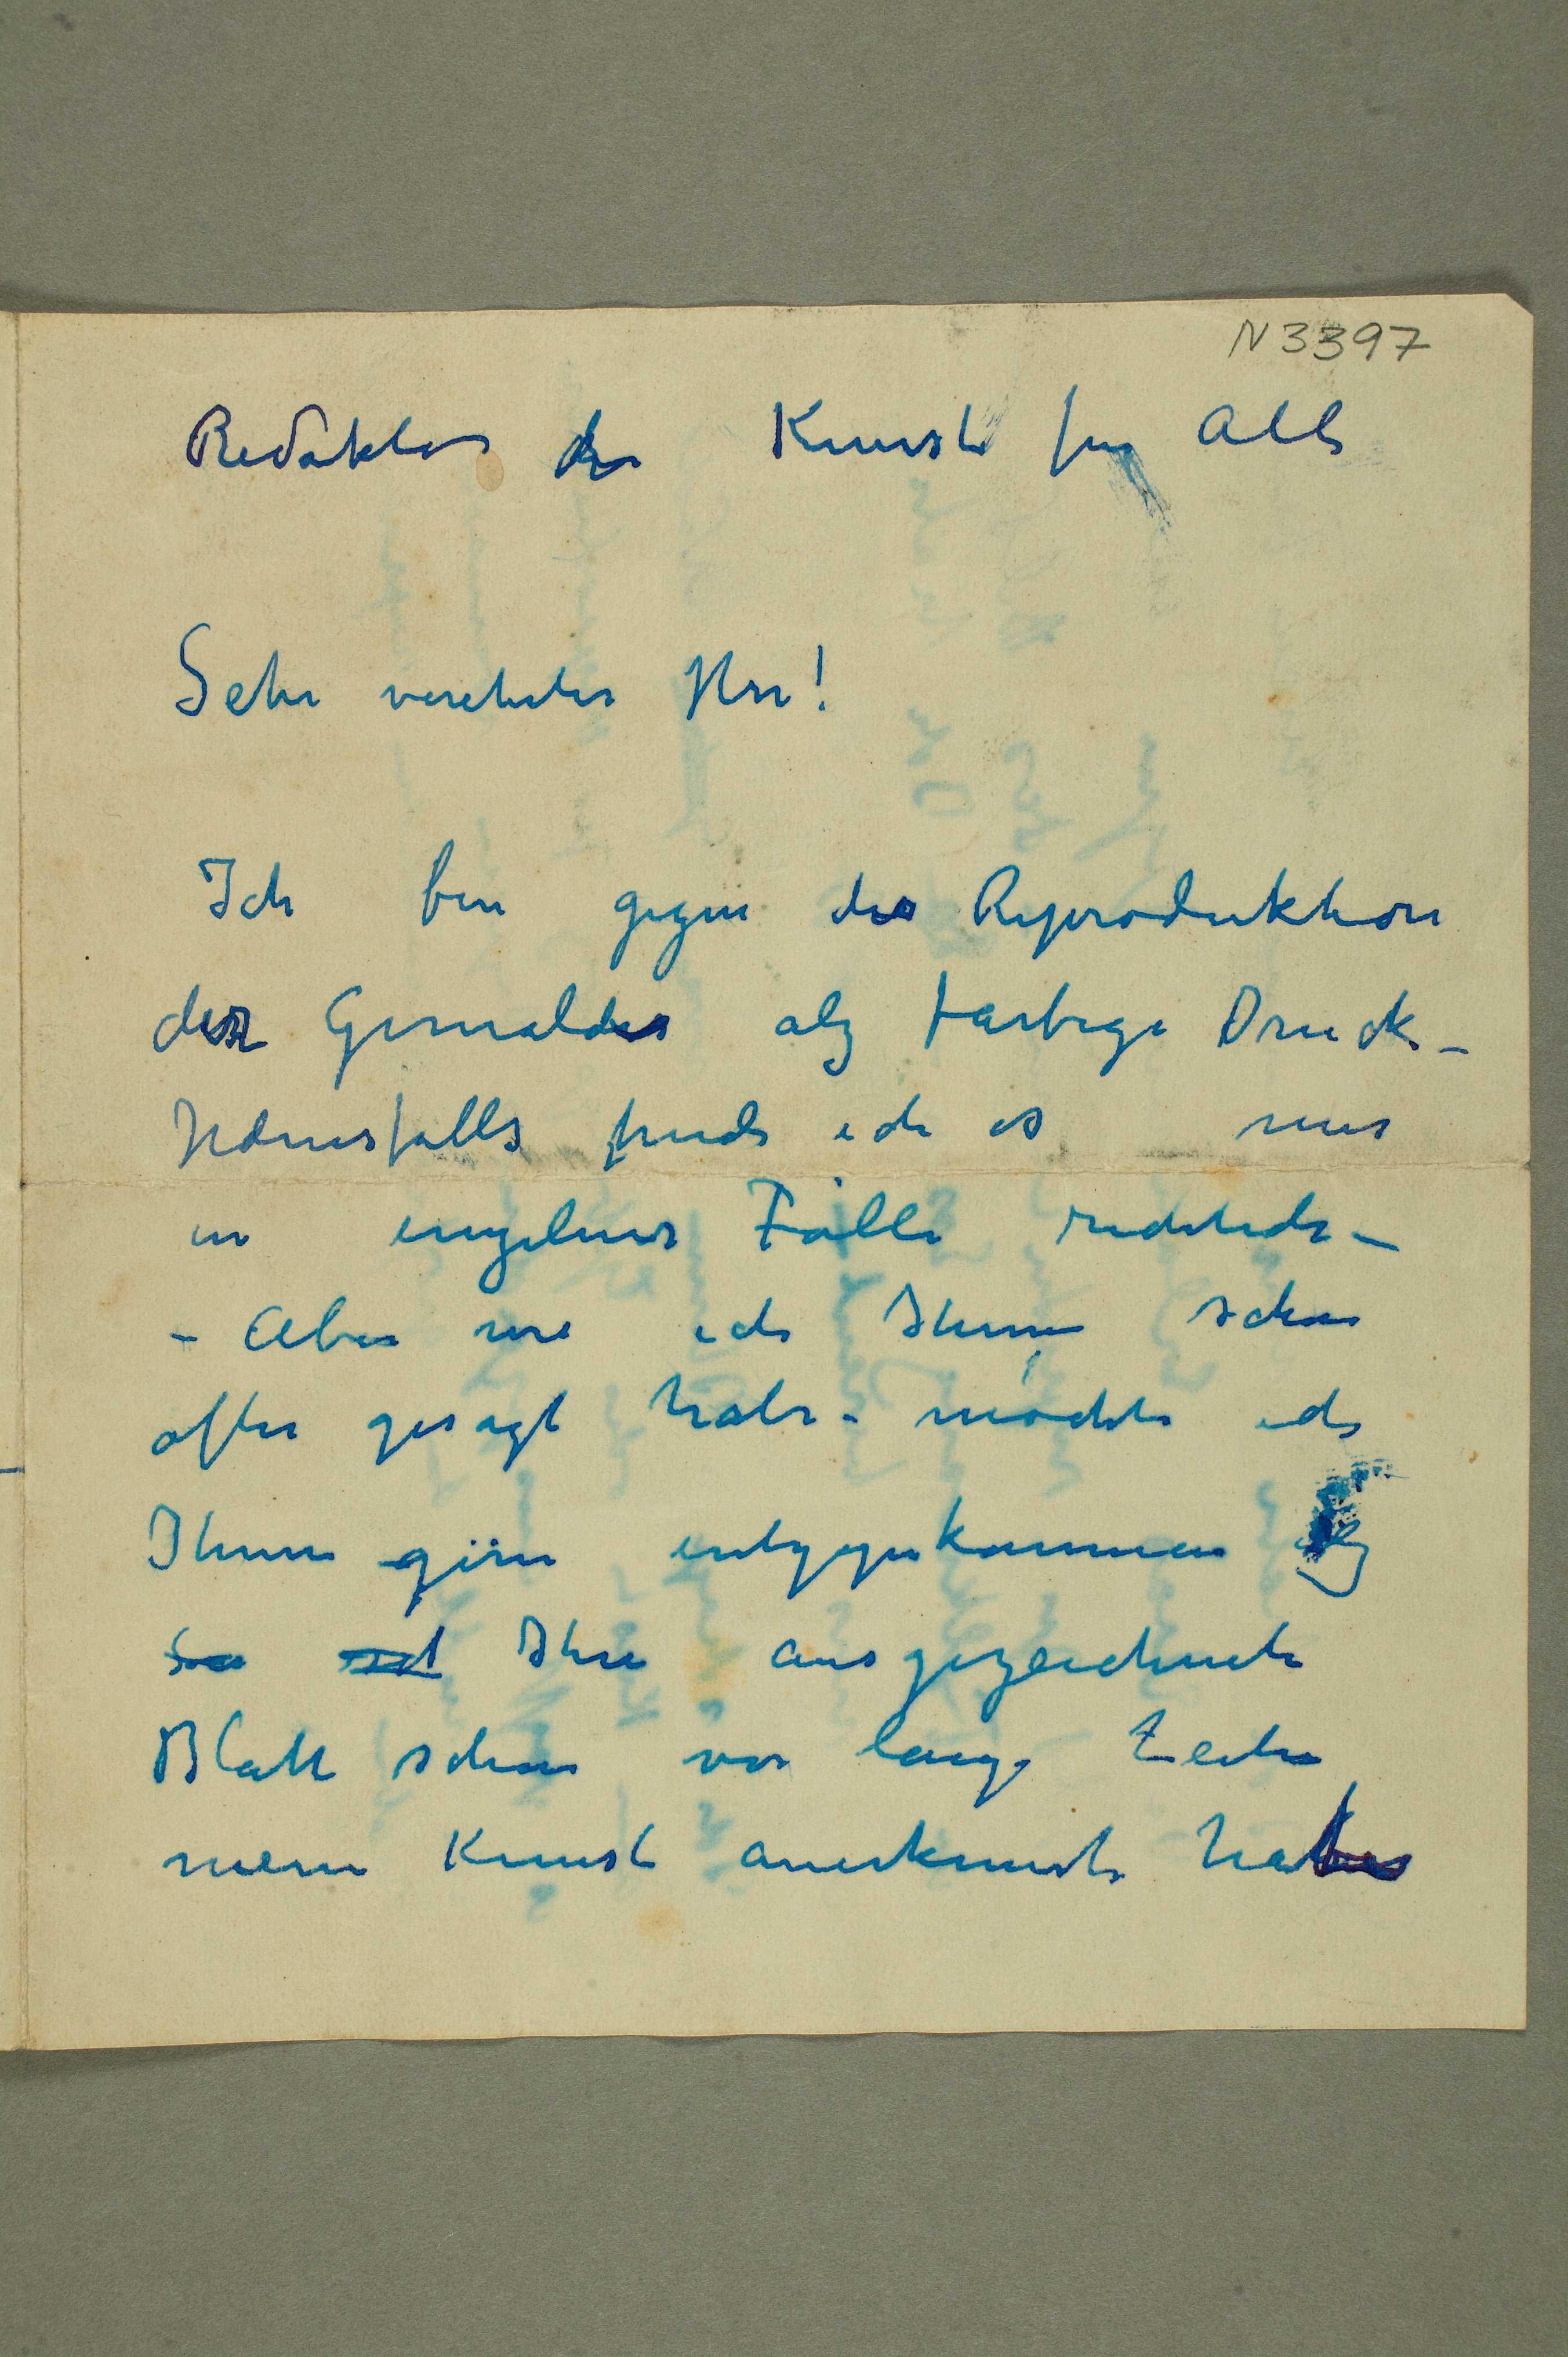 N 3397
Redaktor der Kunst fur Alle
Sehr verehrter Herr!
Ich bin gegen die Reproduktion
der Gemalder alz farbige Druck –
Jedenfalls finde ich es nur
in einzelner Fälle richtich –
– Aber wie ich Ihnen schon
ofter gesagt habe – möchte ich
Ihnen gern entgegenkommen alz
Ihre ausgezeichnete
Blatt schon vor lange Zeite
meine Kunst anerkennte haben